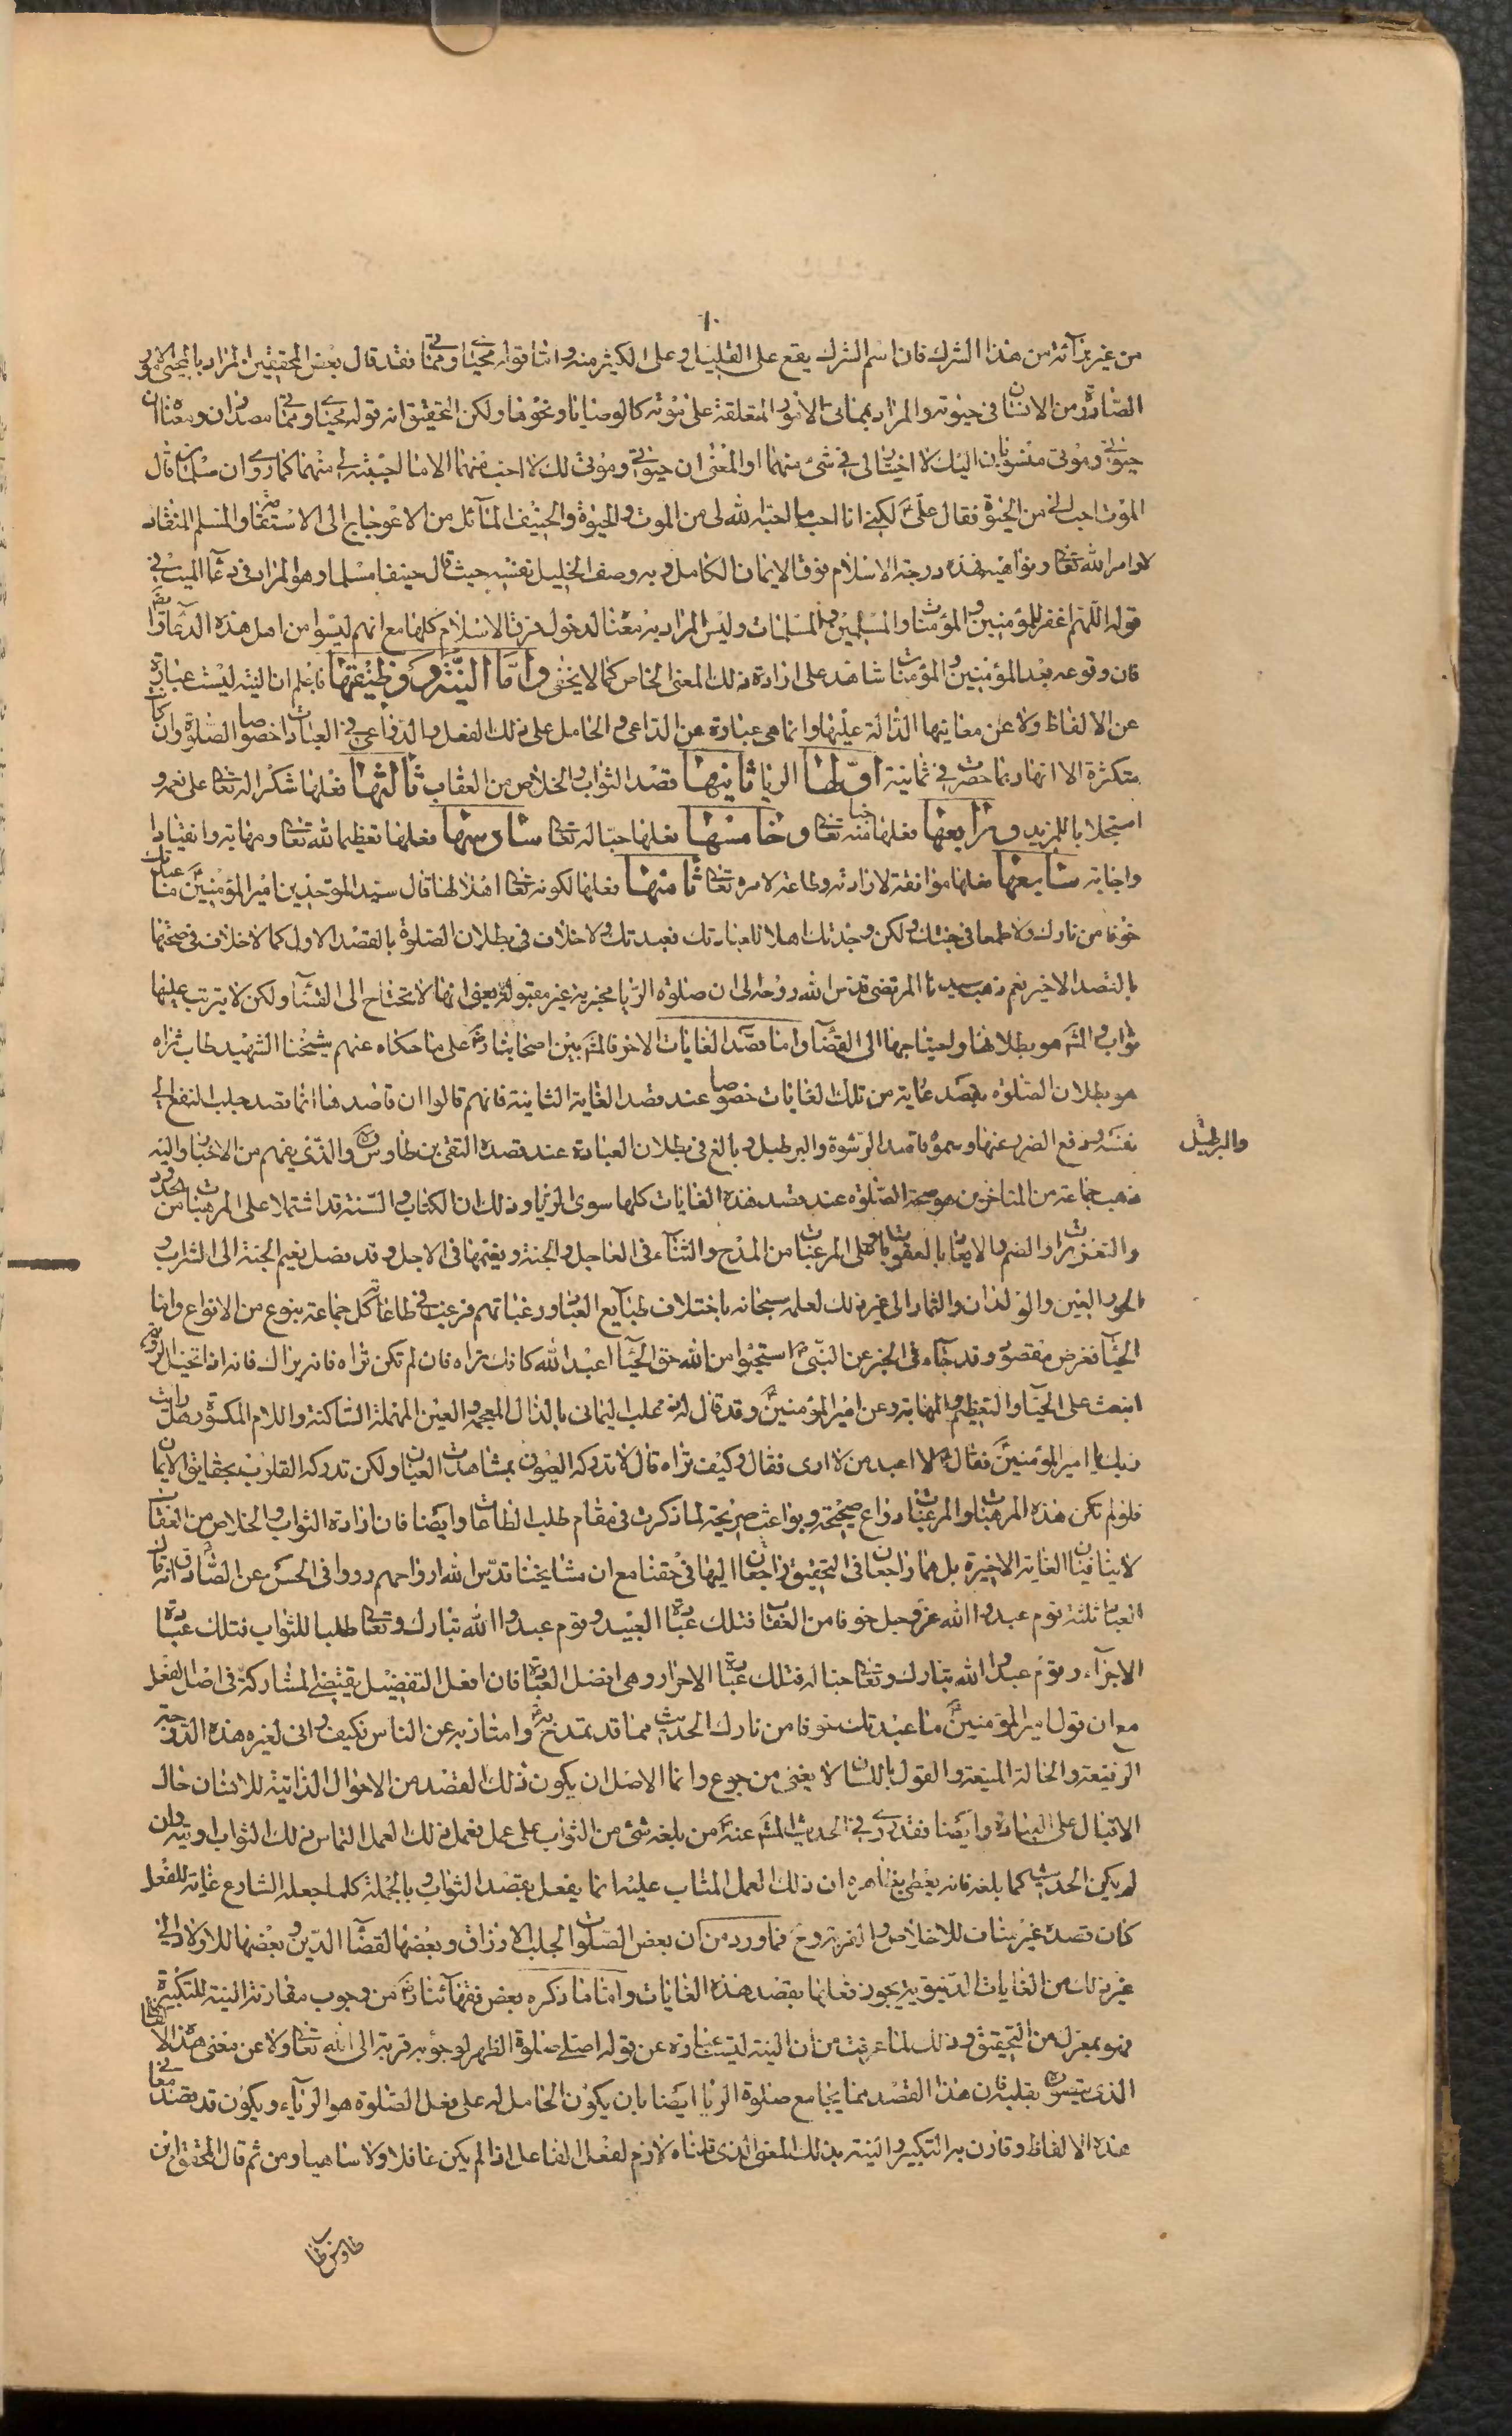 ١٠
من غير برآئة من هذا الشرك فان اسم الشرك يقع على القليل وعلى الكثير منه واما قوله محياي ومماتي فقد قال بعض المحققين المراد بالمحيى الامور
الصادرة من الانسان في حيوته والمراد بمماتي الامور المتعلقة على موته كالوصايا ونحوها ولكن التحقيق انه قوله محياي ومماتي مصدران ومعناه ان
حيوتي وموتي منسوبان اليك لا اختيار لي في شئ منهما او المعنى ان حيوتي وموتي لك لا احب منهما الا ما احببته لي منهما كما روي ان سلمان قال
الموت احب الي من الحيوة فقال علي لكني انا احب ما احبه الله لي من الموت والحيوة والحنيف المآئل من الاعوجاج الى الاستقامة والمسلم المنقاد
لاوامر الله تعالى ونواهيه فهذه درجة الاسلام فوق الايمان الكامل وبه وصف الخليل نفسه حيث قال حنيفا مسلما وهو المراد في دعآء الميت في
قوله اللهم اغفر للمؤمنين والمؤمنات والمسلمين والمسلمات وليس المراد به معنا لدخول فرق الاسلام كلها مع انهم ليسوا من اهل هذه الدعآء وايضا
فان وقوعه بعد المؤمنين والمؤمنات شاهد على ارادة ذلك المعنى الخاص كما لا يخفى واما النية ووظيفتها فاعلم ان النية ليست عبارة
عن الالفاظ ولا عن معانيها الدالة عليها وانما هي عبارة عن الداعي والحامل على ذلك الفعل والدواعي في العبادات خصوصا الصلوة وان كانت
متكثرة الا انها ربما حصرت في ثمانية اولها الريا ثانيها قصد الثواب والخلاص من العقاب ثالثها فعلها شكرا له تعالى على نعمه و
استجلابا للمزيد ورابعها فعلها حياء منه تعالى وخامسها فعلها حبا له تعالى سادسها فعلها تعظيما لله تعالى ومهابة وانقيادا
واجابة سابعها فعلها موافقة لارادته وطاعة لامره تعالى ثامنها فعلها لكونه تعالى اهلا لها قال سيد الموحدين امير المؤمنين ما عبدتك
خوفا من نارك ولا طمعا في جنتك ولكن وجدتك اهلا للعبادتك فعبدتك ولا خلاف في بطلان الصلوة بالقصد الاول كما لا خلاف في صحتها
بالقصد الاخير نعم ذهب سيدنا المرتضى قدس الله روحه الى ان صلوة الريا مجزية غير مقبولة يعنى انها لا تحتاج الى القضآء ولكن لا يترتب عليها
ثواب والمشهور هو بطلانها ولحتياجها الى القضآء واما قصد الغايات الاخر فالمشهور بين اصحابنا على ما حكاه عنهم شيخنا الشهيد طاب ثراه
هو بطلان الصلوة بقصد غاية من تلك الغايات خصوصا عند قصد الغاية الثانية فانهم قالوا ان قاصدها انما قصد جلب النفع الى
نفسه ودفع الضرر عنها وسموه قاصد الرشوة والبرطيل وبالغ في بطلان العبادة عند قصده التقي بن طاوس والذي يفهم من الاخبار واليه
والبرطيل
ذهب جماعة من المتاخرين هو صحة الصلوة عند قصد هذه الغايات كلها سوى الريا وذلك ان الكتاب والسنة قد اشتملا على المرهبات من الحدود
والتعزيرات والذم والايعاد بالعقوبات وعلى المرغبات من المدح والثنآء في العاجل والجنة ونعيمها في الاجل وقد فصل نعيم الجنة الى الشراب و
الحور العين والولدان والثمار الى غير ذلك لعلمه سبحانه باختلاف طبآيع العباد ورغباتهم فرغب في طاعاته كل جماعة بنوع من الانواع واما
الحيآء فغرض مقصود وقد جآء في الخبر عن النبي استحيوا من الله حق الحيآء اعبد الله كانك تراه فان لم تكن تراه فانه يراك فانه اذا تخيل الرؤية
انبعث على الحيآء والتعظيم والمهابة وعن امير المؤمنين وقد قال له ذعلب اليماني بالذال المعجمة والعين المهملة الساكنة واللام المكسورة هل رايت
ربك يا امير المؤمنين فقال لا اعبد من لا ارى فقال وكيف تراه قال لا تدركه العيون بمشاهدت العيان ولكن تدركه القلوب بحقايق الايمان
فلو لم تكن هذه المرهبات والمرغبات دواع صحيحة وبواعث صريحة لما ذكرت في مقام طلب الطاعات وايضا فان ارادة الثواب والخلاص من العقاب
لا ينافيان الغاية الاخيرة بل هما راجعان في التحقيق راجعان اليها في حقنا مع ان مشايخنا قدس الله ارواحهم رووا في الحسن عن الصادق انه قال
العباد ثلثة قوم عبدوا الله عز وجل خوفا من العقاب فتلك عبادة العبيد وقوم عبدوا الله تبارك وتعالى طلبا للثواب فتلك عبادة
الاجرآء وقوم عبدوا الله تبارك وتعالى حبا له فتلك عبادة الاحرار وهي افضل العبادة فان افعل التفضيل يقتضي المشاركة في اصل الفعل
مع ان قول امير المؤمنين ما عبدتك خوفا من نارك الحديث مما قد تمدح به وامتاز به عن الناس فكيف وانى لغيره هذه الدرجة
الرفيعة والحالة المنيعة والقول باللسان لا يغنى من جوع وانما الاصل ان يكون ذلك القصد من الاحوال الذاتية للانسان حال
الاقبال على العبادة وايضا فقد روي في الحديث المشهور عنه من بلغه شئ من الثواب على عمل فعمل ذلك العمل التماس ذلك الثواب اوتيه وان
لم يكن الحديث كما بلغه فانه يعطي بظاهره ان ذلك العمل المثاب عليه انما يفعل بقصد الثواب وبالجملة كلما جعله الشارع غاية للفعل
كان قصده غير مناف للاخلاص والقربة وح فما ورد من ان بعض الصلوات لجلب الارزاق وبعضها لقضآء الدين وبعضها للاولاد الى
غير ذلك من الغايات الدنيوية يجوز فعلها بقصد هذه الغايات واما ما ذكره بعض فقهآئنا من وجوب مقارنة النية للتكبيرة
فهو بمعزل من التحقيق وذلك لما عرفت من ان النية ليست عبارة عن قوله اصلي صلوة الظهر لوجوبه قربة الى الله تعالى ولا عن معنى هذه الالفاظ
الذي يتصوره بقلبه فان هذا القصد مما يجامع صلوة الريا ايضا بان يكون الحامل له على فعل الصلوة هو الريآء ويكون قد قصد معاني
هذه الالفاظ وقارن به التكبير والنية بذلك المعنى الذي قلناه لازم لفعل الفاعل اذا لم يكن غافلا ولا ساهيا ومن ثم قال المحقق ابن
طاوس طاب